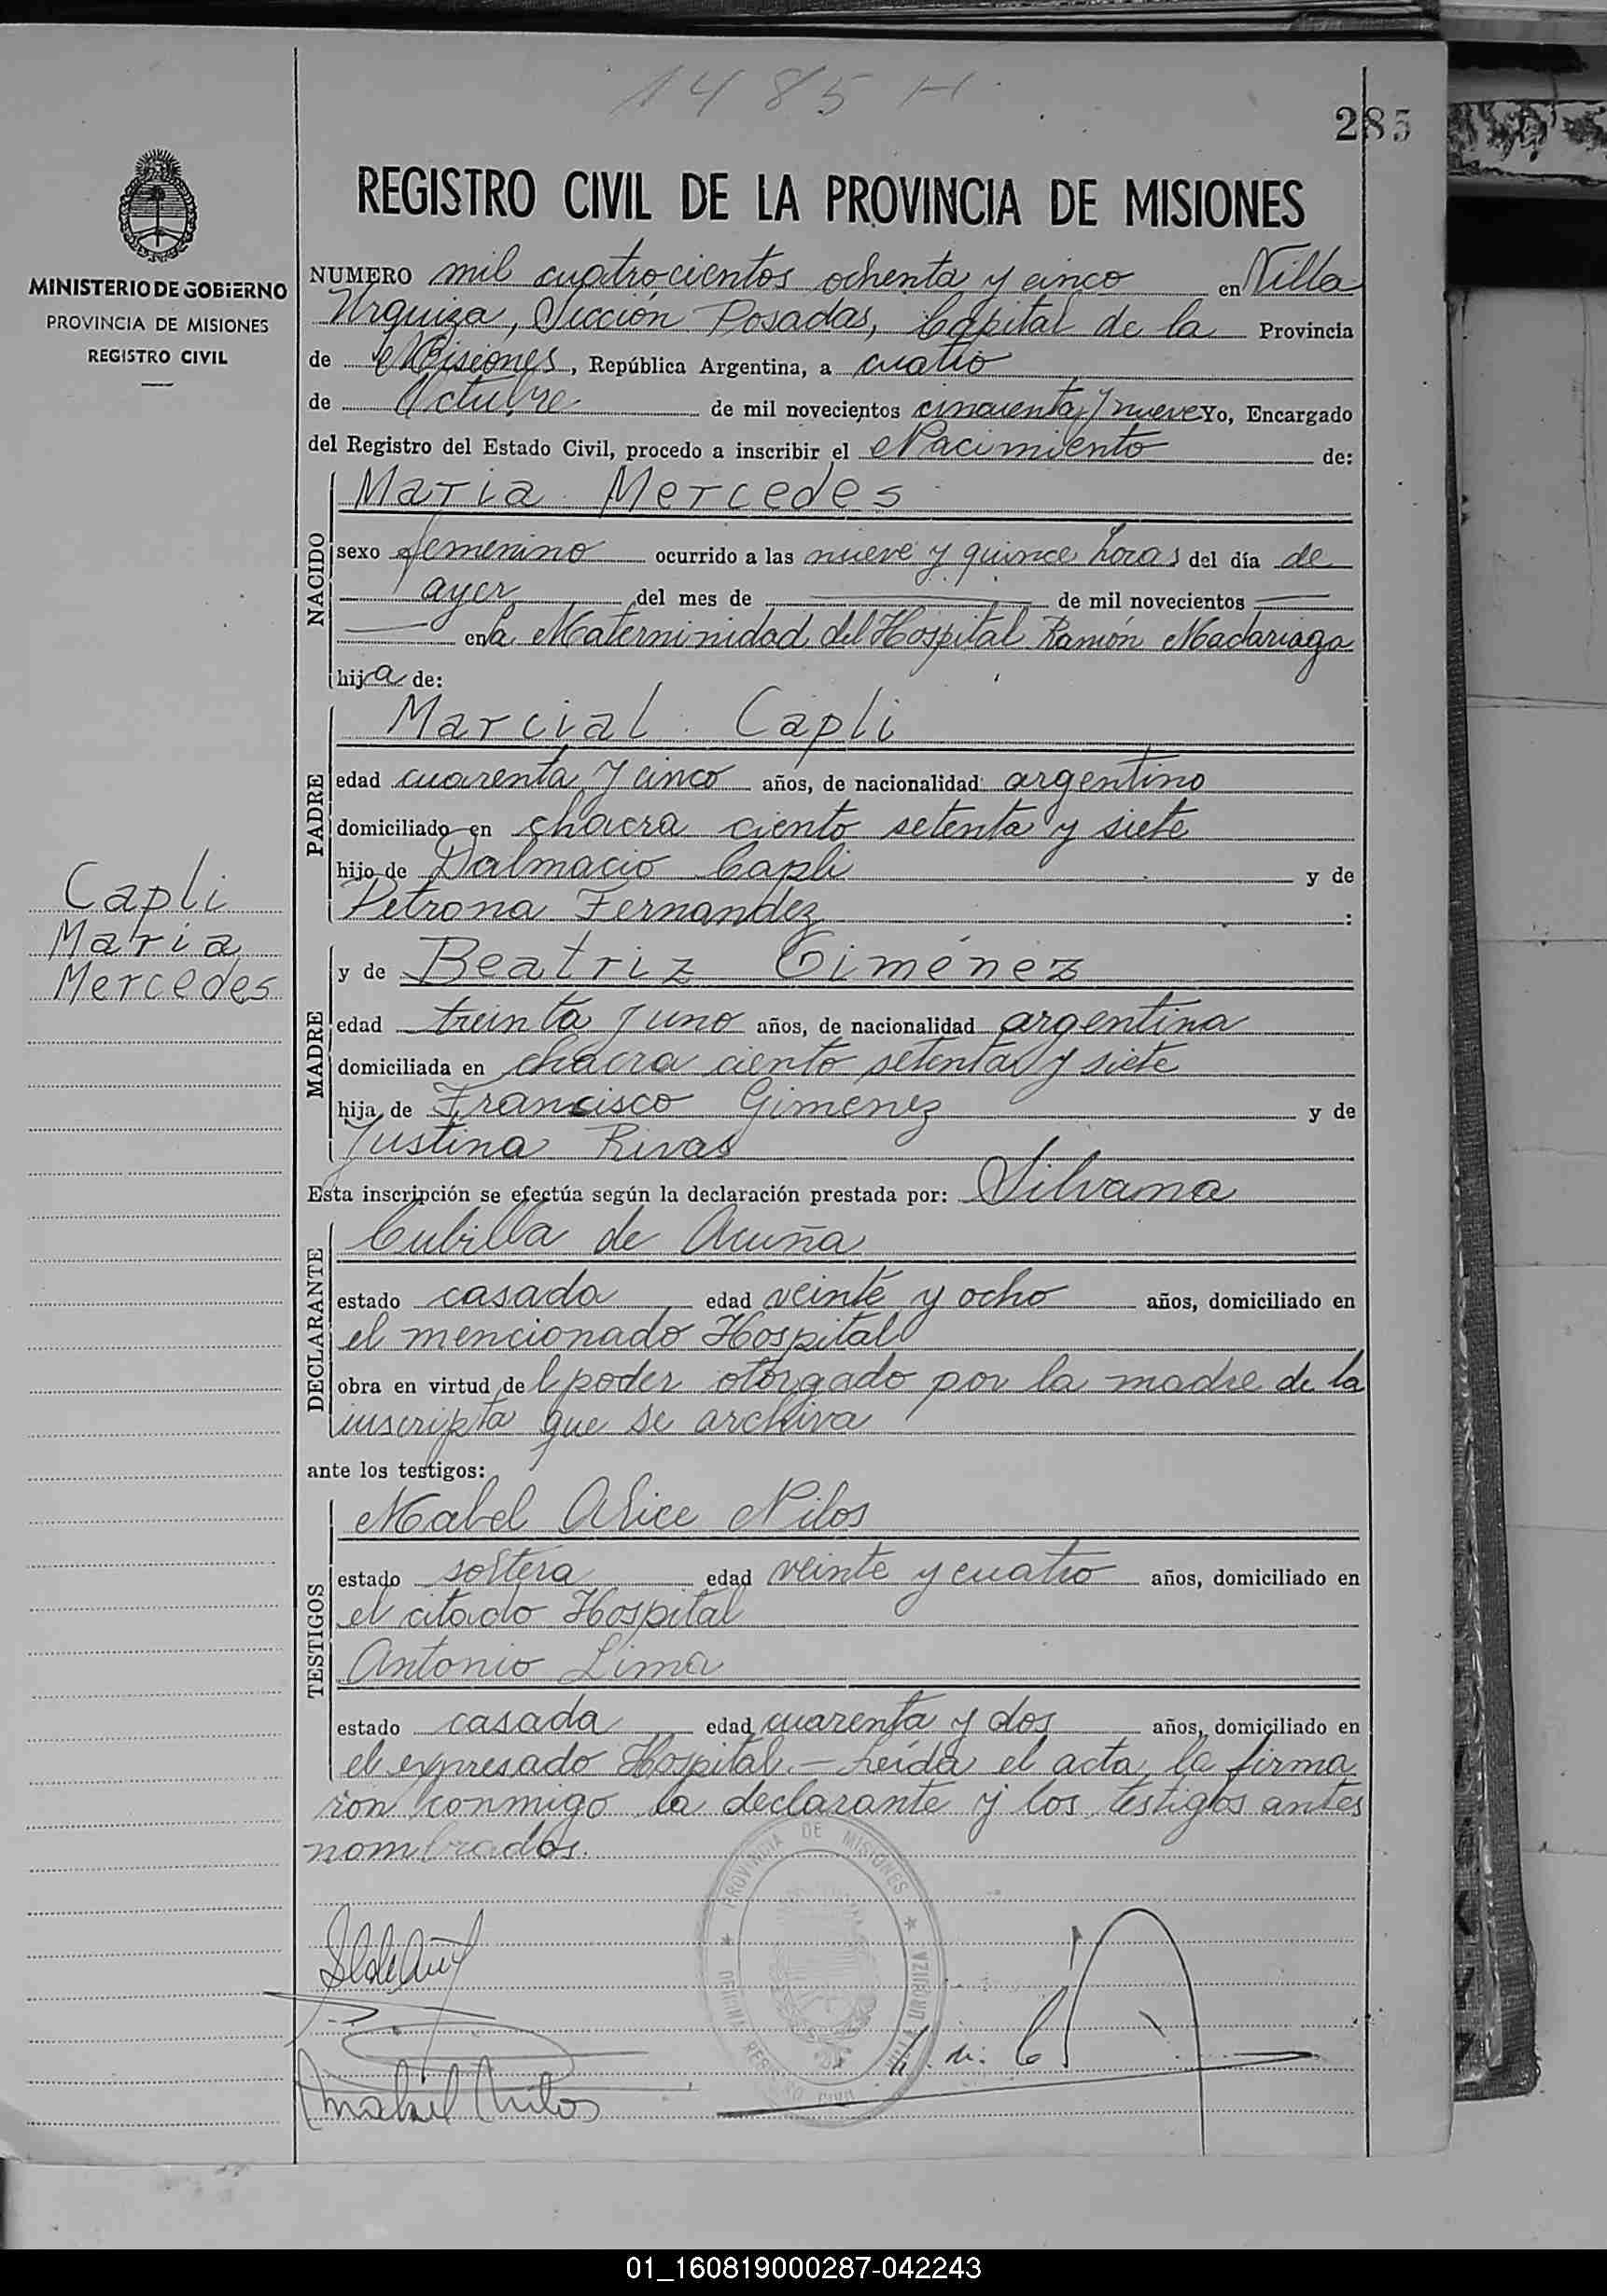 1485 H
285
REGISTRO CIVIL DE LA PROVINCIA DE MISIONES
MINISTERIO DE GOBIERNO
PROVINCIA DE MISIONES
REGISTRO CIVIL
NUMERO mil cuatrocientos ochenta y cinco en Villa
Urquiza, Sección Posadas, Capital de la Provincia
de Misiones, República Argentina, a cuatro
de Octubre de mil novecientos cincuenta y nueve Yo, Encargado
del Registro del Estado Civil, procedo a inscribir el Nacimiento de:
NACIDO
Maria Mercedes
sexo femenino ocurrido a las nueve y quince horas del día de
ayer del mes de de mil novecientos
en la Materninidad del Hospital Ramón Madariaga
hija de:
PADRE
Marcial Capli
edad cuarenta y cinco años, de nacionalidad argentino
domiciliado en chacra ciento setenta y siete
hijo de Dalmacio Capli y de
Petrona Fernandez :
Capli
Maria
Mercedes
MADRE
y de Beatriz Giménez
edad treinta y uno años, de nacionalidad argentina
domiciliada en chacra ciento setenta y siete
hija de Francisco Gimenez y de
Justina Rivas
Esta inscripción se efectúa según la declaración prestada por: Silvana
DECLARANTE
Cubilla de Acuña
estado casada edad veinte y ocho años, domiciliado en
el mencionado Hospital
obra en virtud de l poder otorgado por la madre de la
inscripta que se archiva
ante los testigos:
TESTIGOS
Mabel Alice Nilos
estado soltera edad veinte y cuatro años, domiciliado en
el citado Hospital
Antonio Lima
estado casada edad cuarenta y dos años, domiciliado en
el expresado Hospital.- Leída el acta, la firma
ron conmigo la declarante y los testigos antes
nombrados.
PROVINCIA DE MISIONES
VILLA URQUIZA
REGISTRO CIVIL
Mabel Nilos
01_160819000287-042243